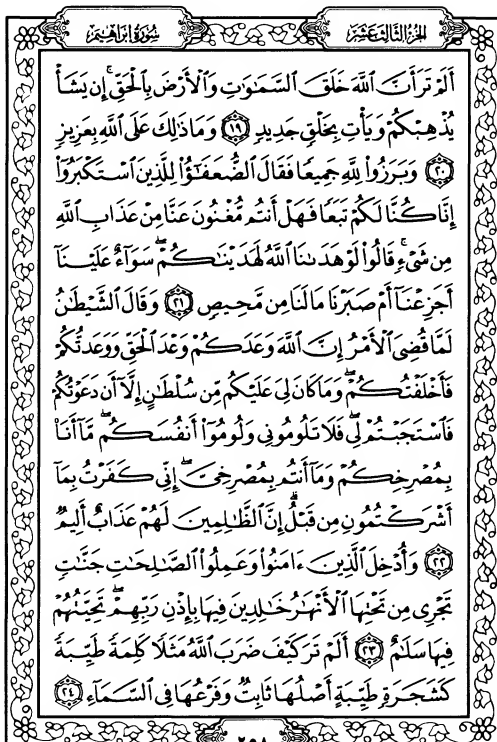 الجزء الثالث عشر
سورة إبراهيم
أَلَمْ تَرَ أَنَّ اللَّهَ خَلَقَ السَّمَٰوَٰتِ وَالْأَرْضَ بِالْحَقِّ ۚ إِن يَشَأْ
يُذْهِبْكُمْ وَيَأْتِ بِخَلْقٍ جَدِيدٍ ١٩ وَمَا ذَٰلِكَ عَلَى اللَّهِ بِعَزِيزٍ
٢٠ وَبَرَزُوا۟ لِلَّهِ جَمِيعًا فَقَالَ الضُّعَفَٰٓؤُا۟ لِلَّذِينَ اسْتَكْبَرُوٓا۟
إِنَّا كُنَّا لَكُمْ تَبَعًا فَهَلْ أَنتُم مُّغْنُونَ عَنَّا مِنْ عَذَابِ اللَّهِ
مِن شَىْءٍ ۚ قَالُوا۟ لَوْ هَدَىٰنَا اللَّهُ لَهَدَيْنَٰكُمْ ۖ سَوَآءٌ عَلَيْنَآ
أَجَزِعْنَآ أَمْ صَبَرْنَا مَا لَنَا مِن مَّحِيصٍ ٢١ وَقَالَ الشَّيْطَٰنُ
لَمَّا قُضِىَ الْأَمْرُ إِنَّ اللَّهَ وَعَدَكُمْ وَعْدَ الْحَقِّ وَوَعَدتُّكُمْ
فَأَخْلَفْتُكُمْ ۖ وَمَا كَانَ لِىَ عَلَيْكُم مِّن سُلْطَٰنٍ إِلَّآ أَن دَعَوْتُكُمْ
فَاسْتَجَبْتُمْ لِى ۖ فَلَا تَلُومُونِى وَلُومُوٓا۟ أَنفُسَكُم ۖ مَّآ أَنَا۠
بِمُصْرِخِكُمْ وَمَآ أَنتُم بِمُصْرِخِىَّ ۖ إِنِّى كَفَرْتُ بِمَآ
أَشْرَكْتُمُونِ مِن قَبْلُ ۗ إِنَّ الظَّٰلِمِينَ لَهُمْ عَذَابٌ أَلِيمٌ
٢٢ وَأُدْخِلَ الَّذِينَ ءَامَنُوا۟ وَعَمِلُوا۟ الصَّٰلِحَٰتِ جَنَّٰتٍ
تَجْرِى مِن تَحْتِهَا الْأَنْهَٰرُ خَٰلِدِينَ فِيهَا بِإِذْنِ رَبِّهِمْ ۖ تَحِيَّتُهُمْ
فِيهَا سَلَٰمٌ ٢٣ أَلَمْ تَرَ كَيْفَ ضَرَبَ اللَّهُ مَثَلًا كَلِمَةً طَيِّبَةً
كَشَجَرَةٍ طَيِّبَةٍ أَصْلُهَا ثَابِتٌ وَفَرْعُهَا فِى السَّمَآءِ ٢٤
٢٥٨